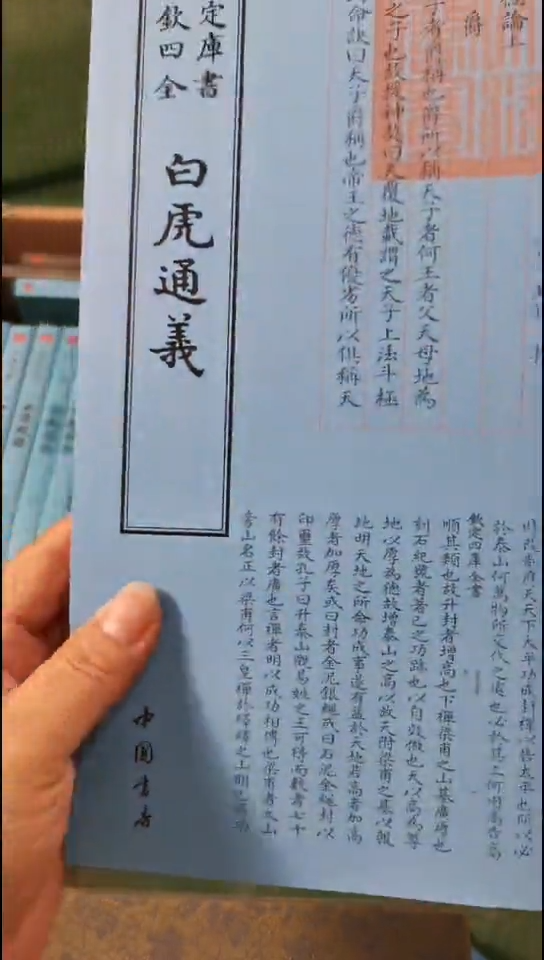 論上
爵
子者爵稱也爵所以稱天子者何王者父天母地為
之子也故援神契曰天覆地載謂之天子上法斗極
命訣曰天子爵稱也帝王之德有優劣所以俱稱天
欽定
四庫
全書
白虎通義
應天天下太平功成封禪以告太平也所以必
於泰山何萬物所交代之處也必於其上何因高告高
欽定四庫全書
順其類也故升封者增高也下禪梁甫之山基廣厚也
刻石紀號者著己之功跡也以自效倣也天以高為尊
地以厚為德故增泰山之高以放天附梁甫之基以報
地明天地之所命功成事遂有益於天地若高者加高
厚者加厚矣或曰封者金泥銀繩或曰石泥金繩封以
印璽故孔子曰升泰山觀易姓之王可得而數者七十
有餘封者廣也言禪者明以成功相傳也梁甫者太山
旁山名正以梁甫何以三皇禪於繹繹之山明己成功
中國書店